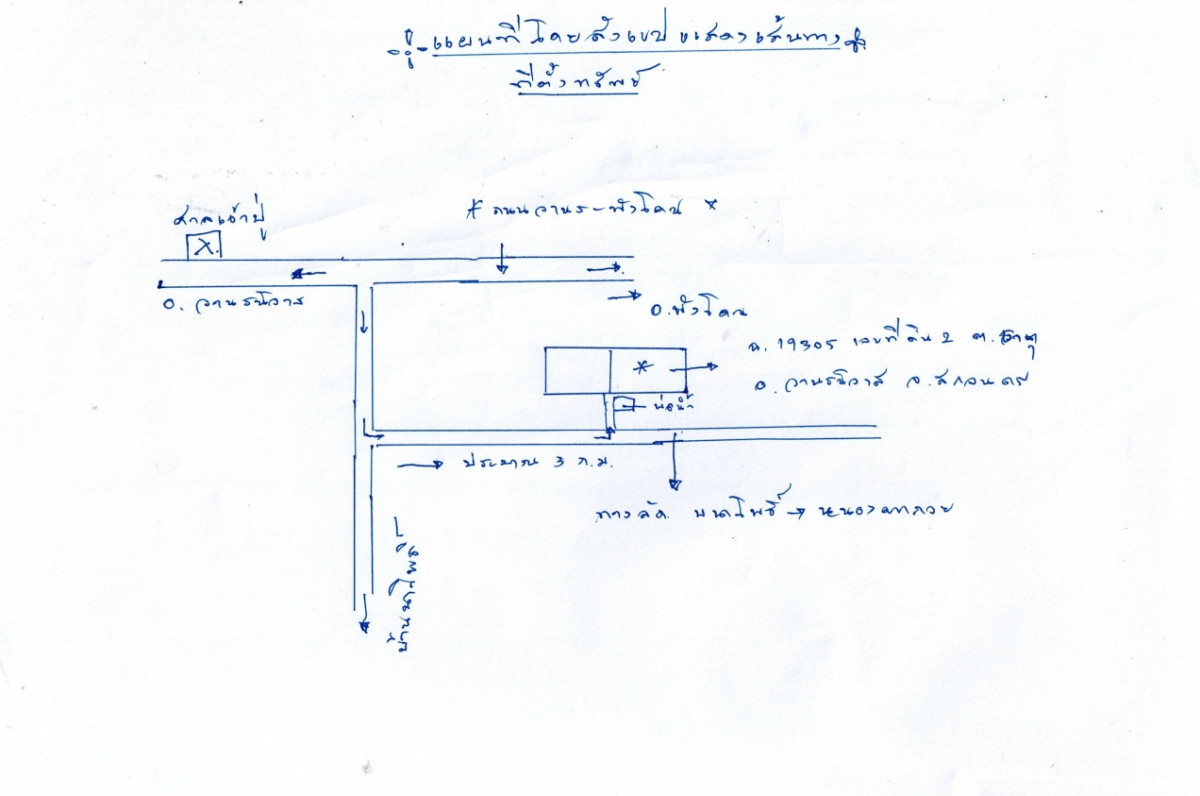 แผนที่โดยสังเขป แสดงเส้นทาง
ที่ตั้งทรัพย์
ศาลเจ้าปู่
X
* ถนนวานร-พังโคน *
อ. วานรนิวาส
อ.พังโคน
ฉ. 19305 เลขที่ดิน 2 ต.ธาตุ
อ. วานรนิวาส จ.สกลนคร
*
บ่อน้ำ
ประมาณ 3 ก.ม.
ทางลัด